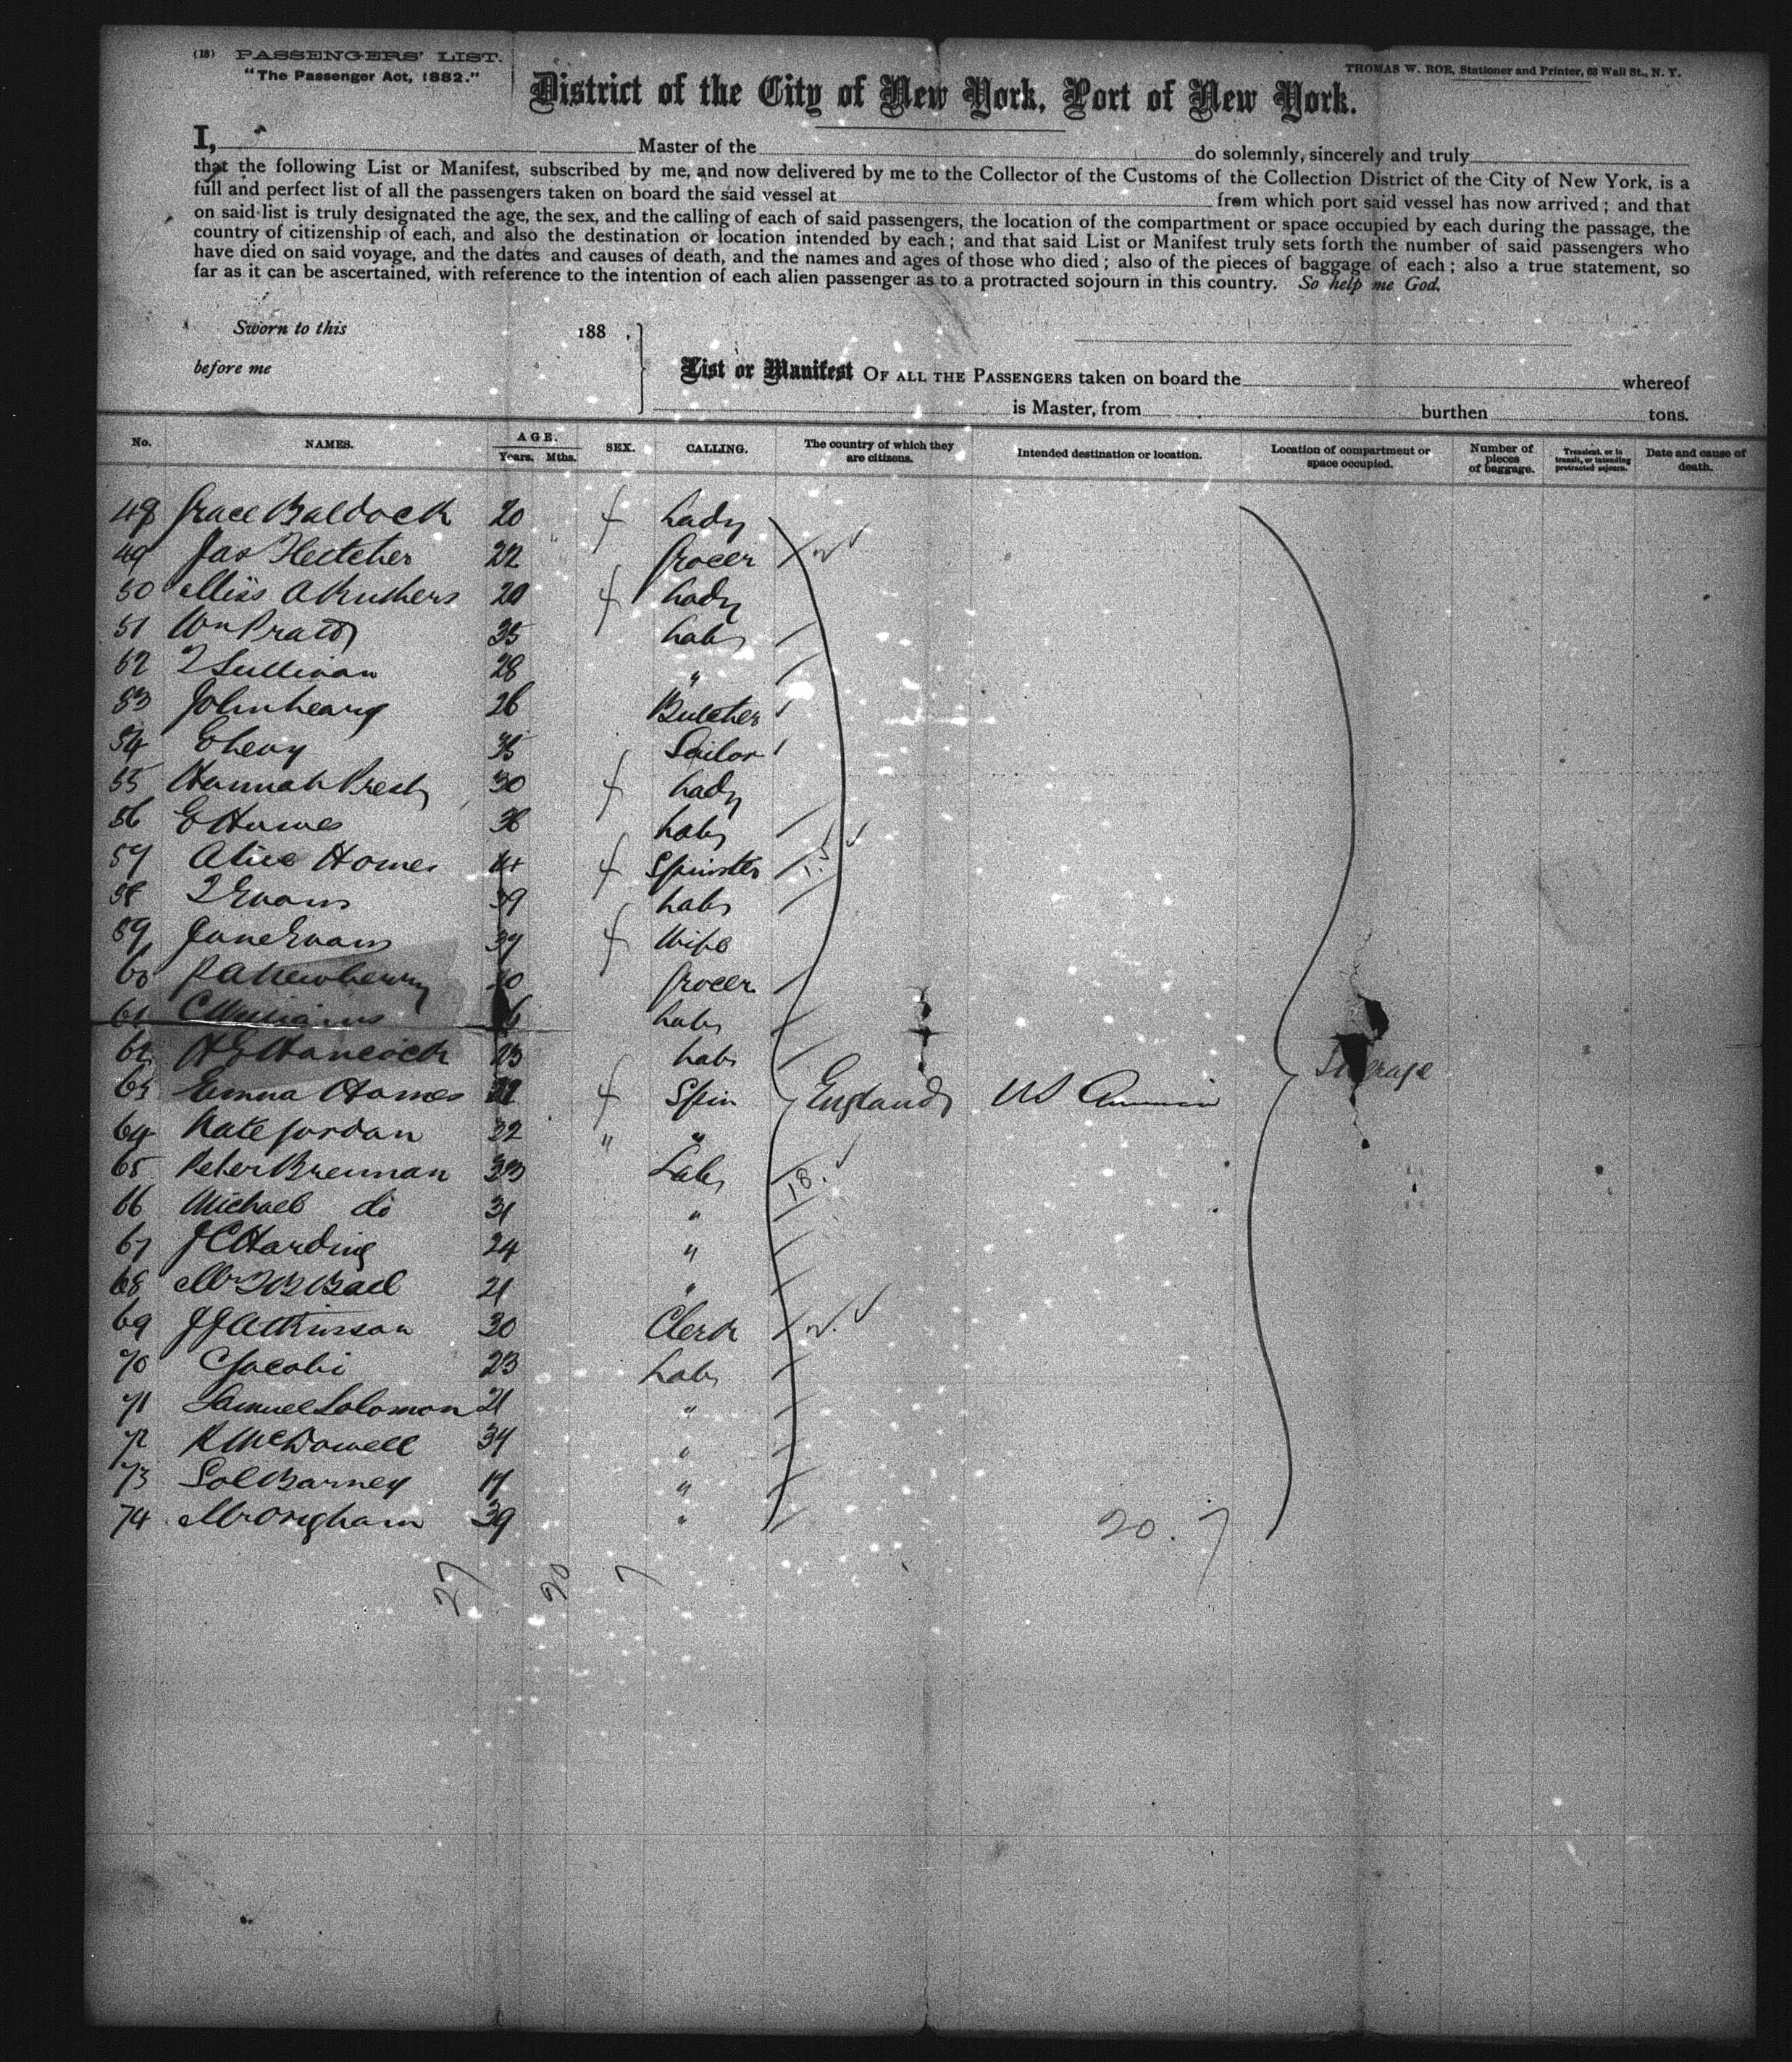 (18) PASSENGERS' LIST.
"The Passenger Act, 1882."
THOMAS W. ROE, Stationer and Printer, 63 Wall St., N. Y.
District of the City of New York, Port of New York.
I, Master of the do solemnly, sincerely and truly
that the following List or Manifest, subscribed by me, and now delivered by me to the Collector of the Customs of the Collection District of the City of New York, is a
full and perfect list of all the passengers taken on board the said vessel at from which port said vessel has now arrived; and that
on said list is truly designated the age, the sex, and the calling of each of said passengers, the location of the compartment or space occupied by each during the passage, the
country of citizenship of each, and also the destination or location intended by each; and that said List or Manifest truly sets forth the number of said passengers who
have died on said voyage, and the dates and causes of death, and the names and ages of those who died; also of the pieces of baggage of each; also a true statement, so
far as it can be ascertained, with reference to the intention of each alien passenger as to a protracted sojourn in this country. So help me God.
Sworn to this 188 ,
before me
List or Manifest OF ALL THE PASSENGERS taken on board the whereof
is Master, from burthen tons.
No. NAMES. AGE. Years. Mths. SEX. CALLING. The country of which they are citizens. Intended destination or location. Location of compartment or space occupied. Number of pieces of baggage. Transient, or in transit, or intending protracted sojourn. Date and cause of death.
48 Grace Baldock 20 f Lady
49 Jas Fletcher 22 Grocer
50 Miss 20 f Lady
51 Wm Pratt 35 Labr
52 Sullivan 28 "
53 John 26 Butcher
54 35 Sailor
55 Hannah 30 f Lady
56 E Homes 38 Labr
57 Alice Homes 14 f Spinster
58 Evans 39 Labr
59 Jane Evans 39 f Wife
60 Newberry Grocer
61 C Williams Labr
62 H E Hancock 23 Labr
63 Emma Homes f Spin England US America Steerage
64 Kate Jordan 22 " "
65 Peter Brennan 23 Labr
66 Michael do 31 "
67 J C Harding 24 "
68 Mr 21 "
69 J J Atkinson 30 Clerk
70 C Jacobi 23 Labr
71 Samuel Solomon 21 "
72 R McDowell 34 "
73 Sol Barney 17 "
74 39 "
20. 7
27 20 7